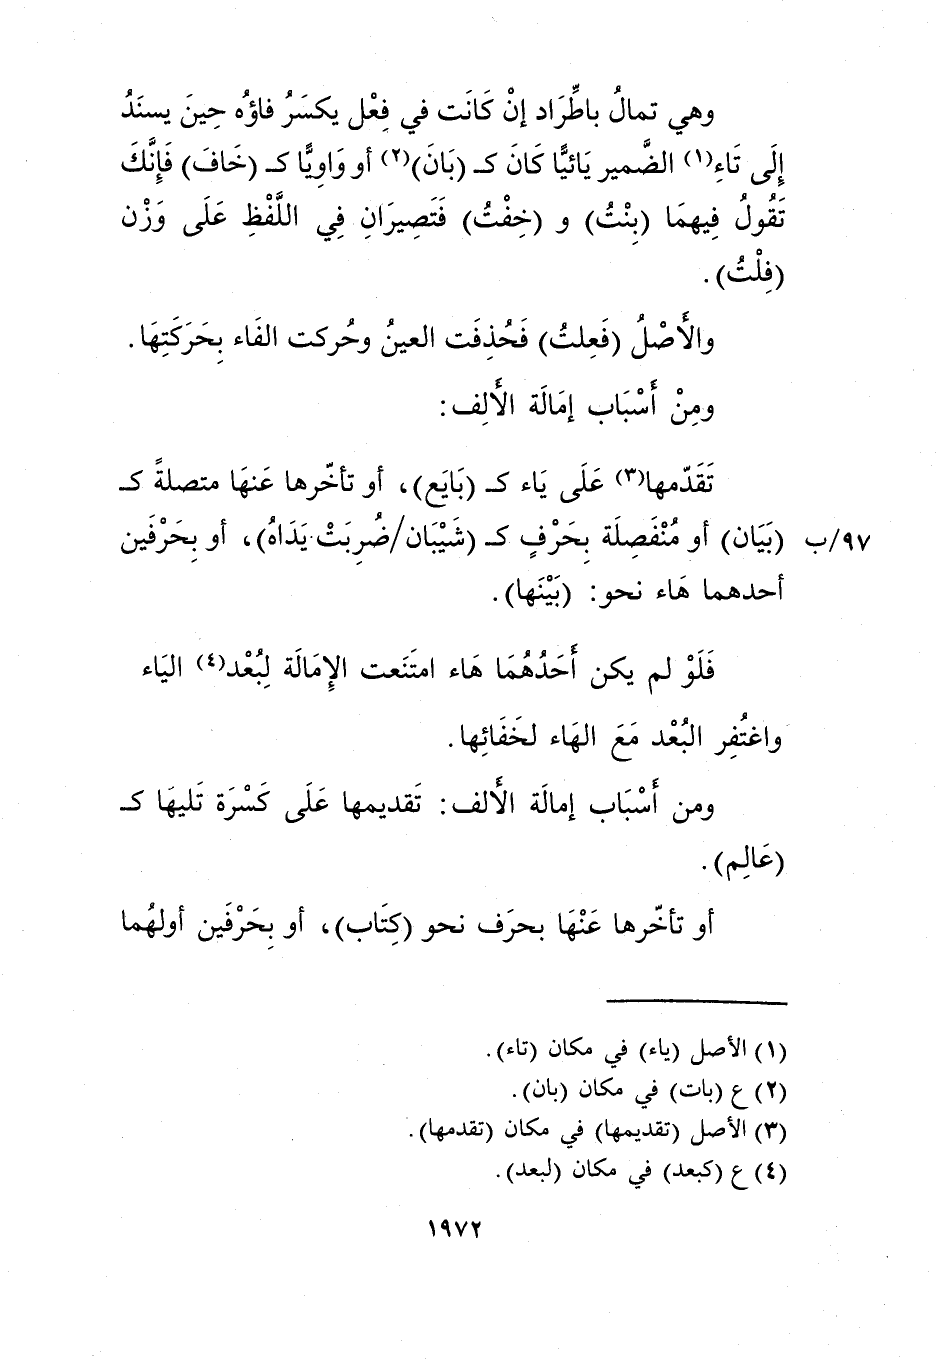 وهي تمالُ باطِّرَاد إنْ كَانَت في فِعْل يكسَرُ فاؤُه حِينَ يسنَدُ
إِلَى تَاءِ(١) الضَّمير يَائيًّا كَانَ كـ (بَانَ)(٢) أو وَاوِيًّا كـ (خَافَ) فَإِنَّكَ
تَقُولُ فِيهمَا (بِنْتُ) و (خِفْتُ) فَتَصِيرَانِ فِي اللَّفْظِ عَلَى وَزْن
(فِلْتُ).
والأَصْلُ (فَعِلتُ) فَحُذِفَت العينُ وحُركت الفَاء بِحَرَكَتِهَا.
ومِنْ أَسْبَاب إمَالَة الأَلِف:
تَقَدّمها(٣) عَلَى يَاء كـ (بَايَع)، أو تأخّرها عَنهَا متصلةً كـ
٩٧/ب (بَيَان) أو مُنْفَصِلَة بِحَرْفٍ كـ (شَيْبَان/ضُرِبَتْ يَدَاهُ)، أو بِحَرْفَين
أحدهما هَاء نحو: (بَيْنَها).
فَلَوْ لم يكن أَحَدُهُمَا هَاء امتَنَعت الإِمَالَة لِبُعْد(٤) اليَاء
واغتُفِر البُعْد مَعَ الهَاء لخَفَائِها.
ومن أَسْبَاب إمالَة الأَلف: تَقديمها عَلَى كَسْرَة تَليهَا كـ
(عَالِم).
أو تأخّرها عَنْهَا بحرَف نحو (كِتَاب)، أو بِحَرْفَين أولهُما
(١) الأصل (ياء) في مكان (تاء).
(٢) ع (بات) في مكان (بان).
(٣) الأصل (تقديمها) في مكان (تقدمها).
(٤) ع (كبعد) في مكان (لبعد).
١٩٧٢